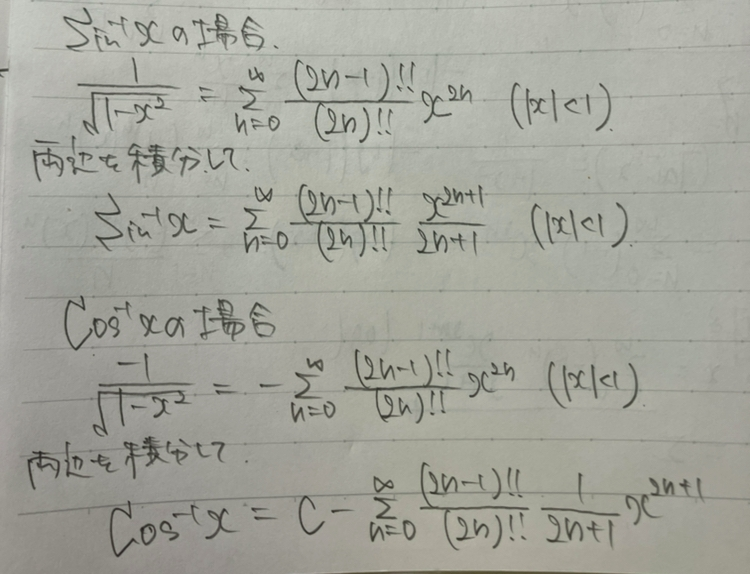 Sin⁻¹xの場合.
1/√(1-x²) = Σ_{n=0}^{∞} (2n-1)!!/(2n)!! x^{2n} (|x|<1)
両辺を積分して.
Sin⁻¹x = Σ_{n=0}^{∞} (2n-1)!!/(2n)!! x^{2n+1}/(2n+1) (|x|<1)
Cos⁻¹xの場合
-1/√(1-x²) = -Σ_{n=0}^{∞} (2n-1)!!/(2n)!! x^{2n} (|x|<1)
両辺を積分して.
Cos⁻¹x = C - Σ_{n=0}^{∞} (2n-1)!!/(2n)!! 1/(2n+1) x^{2n+1}